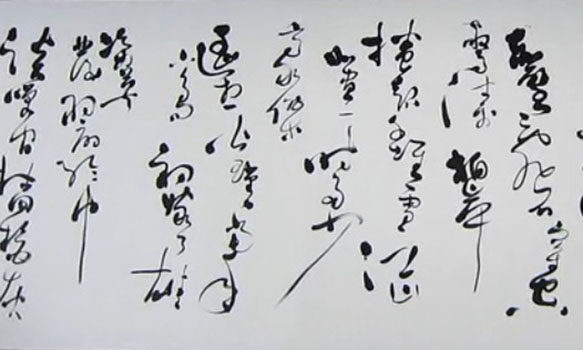 石穿空
驚濤拍岸
捲起千堆雪江山
如畫一時多少
豪傑
遙想公瑾當年
小喬初嫁了雄
姿英
發羽扇綸巾
談笑間